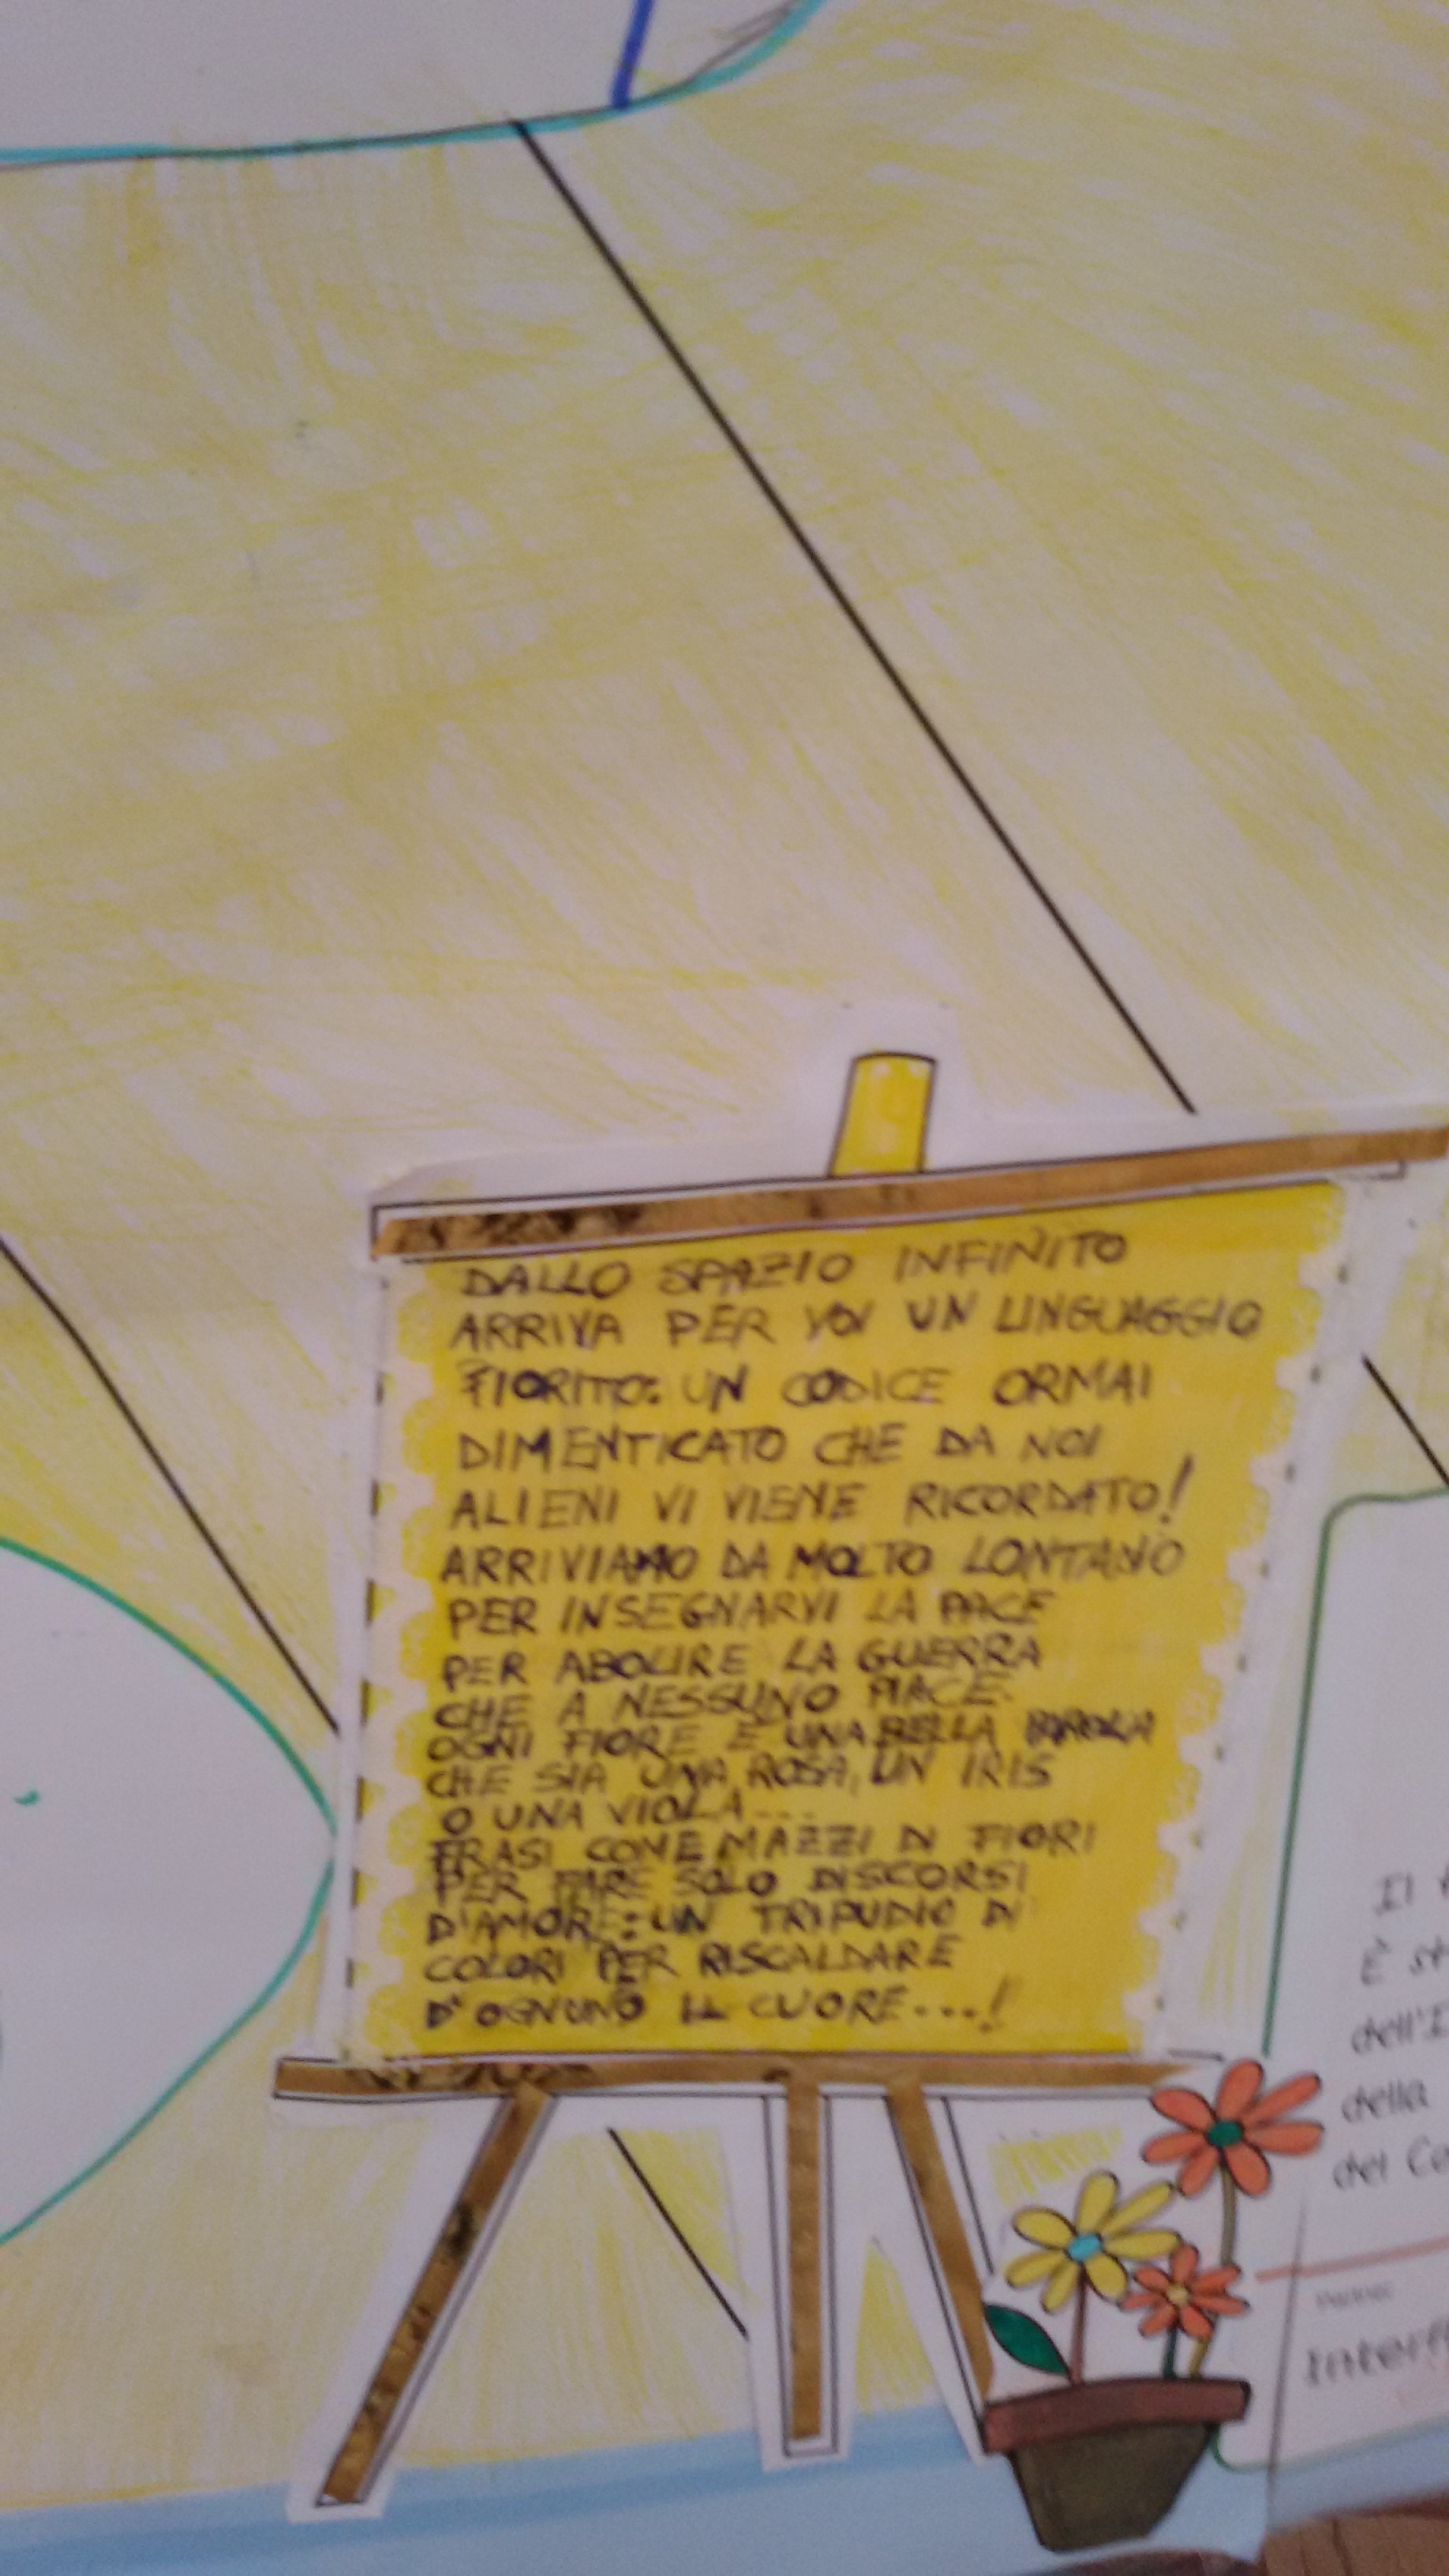 DALLO SPAZIO INFINITO
ARRIVA PER VOI UN LINGUAGGIO
FIORITO: UN CODICE ORMAI
DIMENTICATO CHE DA NOI
ALIENI VI VIENE RICORDATO!
ARRIVIAMO DA MOLTO LONTANO
PER INSEGNARVI LA PACE
PER ABOLIRE LA GUERRA
CHE A NESSUNO PIACE.
OGNI FIORE È UNA BELLA PAROLA
CHE SIA UNA ROSA, UN IRIS
O UNA VIOLA...
FRASI COME MAZZI DI FIORI
PER FARE SOLO DISCORSI
D'AMORE: UN TRIPUDIO DI
COLORI PER RISCALDARE
D'OGNUNO IL CUORE....!
Il
È
della
del